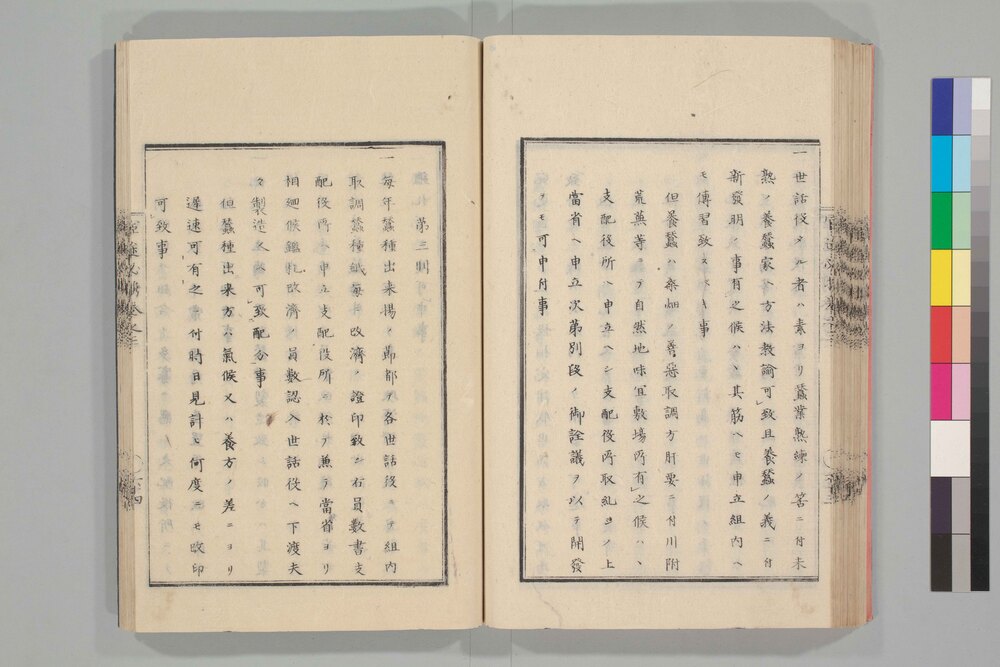 一世話役タル者ハ素ヨリ蚕業熟練ノ筈ニ付未
熟ノ養蚕家ヘ方法教諭可致且養蚕ノ義ニ付
新發明ノ事有之候ハヽ其筋ヘモ申立組内ヘ
モ傳習致スヘキ事
但養蚕ハ桑畑ノ善惡取調方肝要ニ付川附
荒蕪等ニテ自然地味宜敷場所有之候ハヽ
支配役所ヘ申立ヘシ支配役所取糺ヨノ上
當省ヘ申立次第別段ノ御詮議ヲ以テ開發
ヲモ可申付事
第三則
一毎年蚕種出来揚ノ節都テ各世話役ニテ組内
取調蚕種紙毎ニ改濟ノ證印致シ右員數書支
配役所ヘ申立支配役所ニ於テ兼テ當省ヨリ
相廻候鑑札改濟ノ員數認入世話役ヘ下渡夫
々製造人ヘ可致配分事
但蚕種出来方ハ氣候又ハ養方ノ差ニヨリ
遅速可有之ニ付時日見計モ何度ニモ改印
可致事